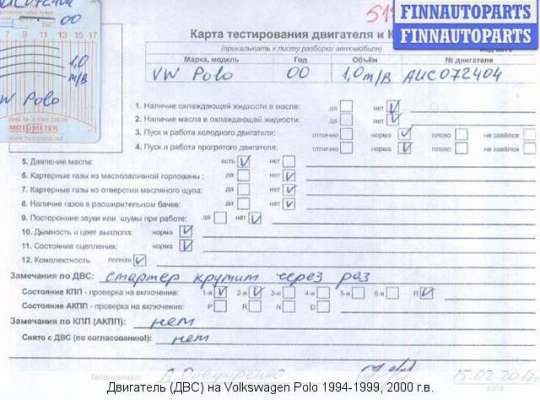 FINNAUTOPARTS
FINNAUTOPARTS
AUC072404
00
13 15 17
1,0
м/в
VW Polo
MOTOMETER
Карта тестирования двигателя и К
(прикалывать к листу разборки автомобиля)
Марка, модель Год Объём № двигателя
VW Polo 00 1,0 м/в AUC072404
1. Наличие охлаждающей жидкости в масле: да нет
2. Наличие масла в охлаждающей жидкости: да нет
3. Пуск и работа холодного двигателя: отлично норма плохо не завёлся
4. Пуск и работа прогретого двигателя: отлично норма плохо не завёлся
5. Давление масла: есть нет
6. Картерные газы из маслозаливной горловины: да нет
7. Картерные газы из отверстия масляного щупа: да нет
8. Наличие газов в расширительном бачке: да нет
9. Посторонние звуки или шумы при работе: да нет
10. Дымность и цвет выхлопа: норма
11. Состояние сцепления: норма
12. Комплектность полная
Замечания по ДВС: стартер крутит через раз
Состояние КПП - проверка на включение: 1-я 2-я 3-я 4-я 5-я 6-я R
Состояние АКПП - проверка на включение: P R N D
Замечания по КПП (АКПП): нет
Снято с ДВС (по согласованию): нет
Двигатель (ДВС) на Volkswagen Polo 1994-1999, 2000 г.в.